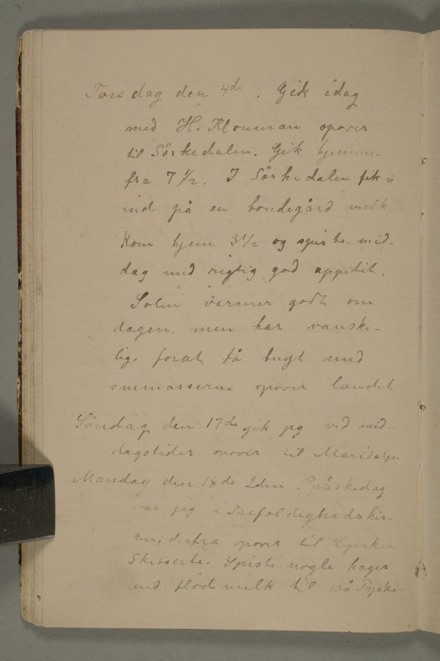 Torsdag den 4de. Gik idag
med H. Klouman opover
til Sörkedalen. Gik hjemme-
fra 7 1/2. I Sörkedalen fik vi
ind på en bondegård melk
Kom hjem 3 1/2 og spiste mid-
dag med rigtig god appitit.
Solen varmer godt om
dagen men har vanske-
lig forat få bugt med
snemasserne opover landet
Söndag den 17de gik jeg ved mid-
dagstider opover til Maridalen
Mandag den 18de 2den Påskedag
var jeg i Trefoldighedskir-
ken, derfra opover til
Spiste nogle kager
med flödemelk til på